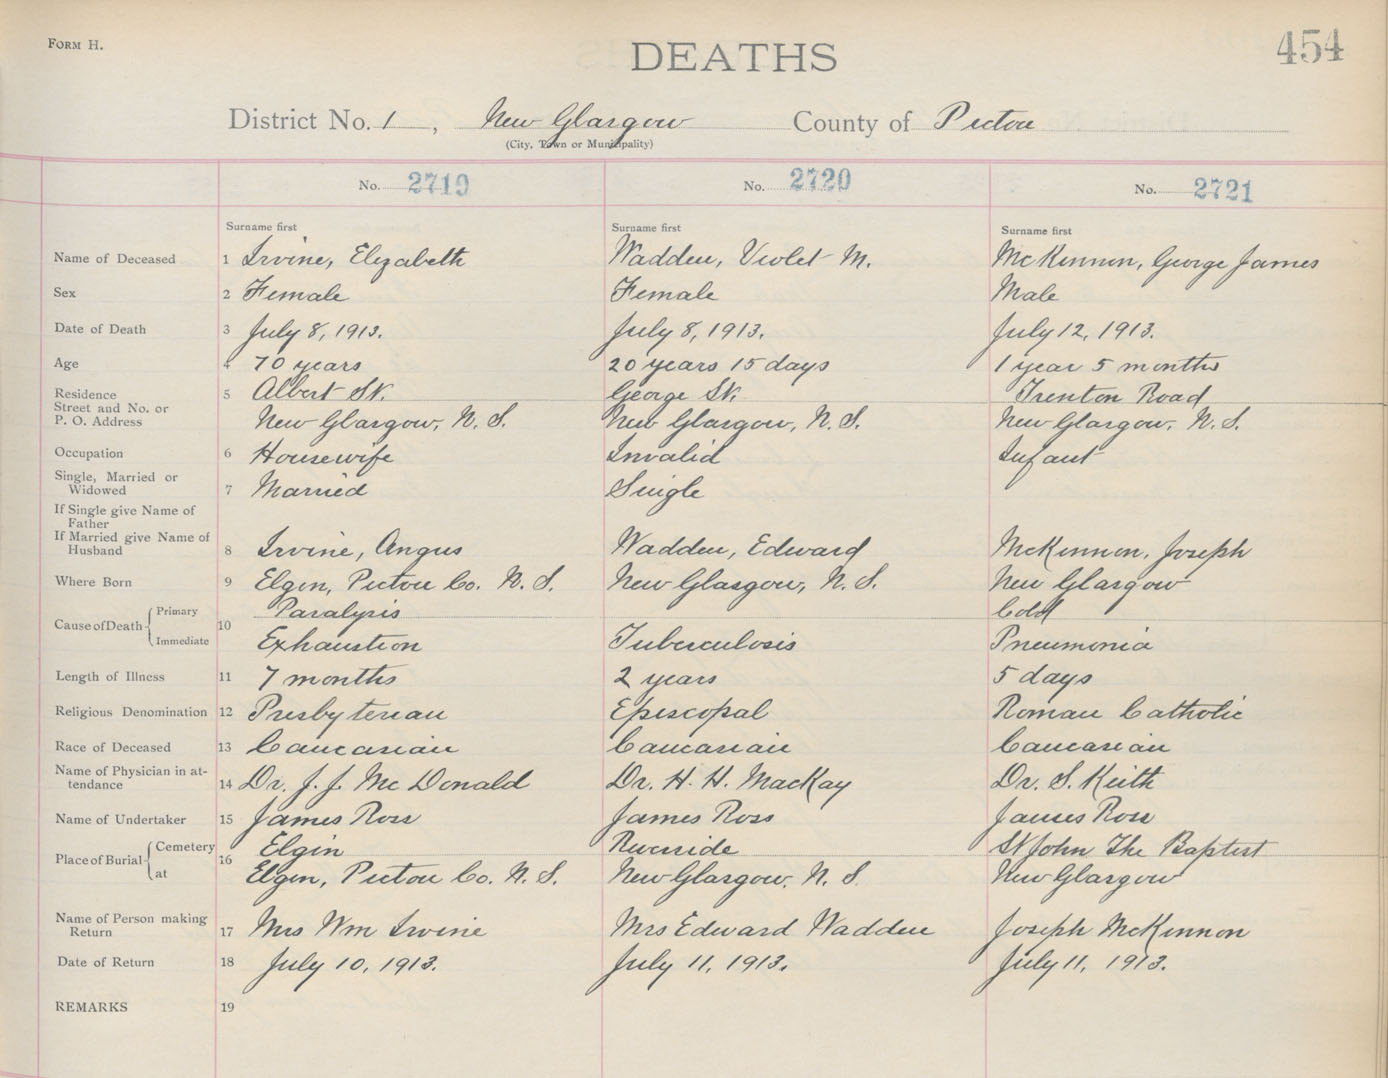 FORM H.
DEATHS
454
District No. 1, New Glasgow County of Pictou
(City, Town or Municipality)
No. 2719 No. 2720 No. 2721
Surname first Surname first Surname first
Name of Deceased 1 Irvine, Elizabeth Wadden, Violet M. McKinnon, George James
Sex 2 Female Female Male
Date of Death 3 July 8, 1913. July 8, 1913. July 12, 1913.
Age 4 70 years 20 years 15 days 1 year 5 months
Residence 5 Albert St. George St. Trenton Road
Street and No. or
P. O. Address New Glasgow, N. S. New Glasgow, N. S. New Glasgow, N. S.
Occupation 6 Housewife Invalid Infant
Single, Married or
Widowed 7 Married Single
If Single give Name of
Father
If Married give Name of
Husband 8 Irvine, Angus Wadden, Edward McKinnon, Joseph
Where Born 9 Elgin, Pictou Co. N. S. New Glasgow, N. S. New Glasgow
Cause of Death 10 Primary Paralysis Cold
Immediate Exhaustion Tuberculosis Pneumonia
Length of Illness 11 7 months 2 years 5 days
Religious Denomination 12 Presbyterian Episcopal Roman Catholic
Race of Deceased 13 Caucasian Caucasian Caucasian
Name of Physician in at-
tendance 14 Dr. J. J. McDonald Dr. H. H. MacKay Dr. S. Keith
Name of Undertaker 15 James Ross James Ross James Ross
Place of Burial 16 Cemetery Elgin Riverside St John The Baptist
at Elgin, Pictou Co. N. S. New Glasgow, N. S. New Glasgow
Name of Person making
Return 17 Mrs Wm Irvine Mrs Edward Wadden Joseph McKinnon
Date of Return 18 July 10, 1913. July 11, 1913. July 11, 1913.
REMARKS 19